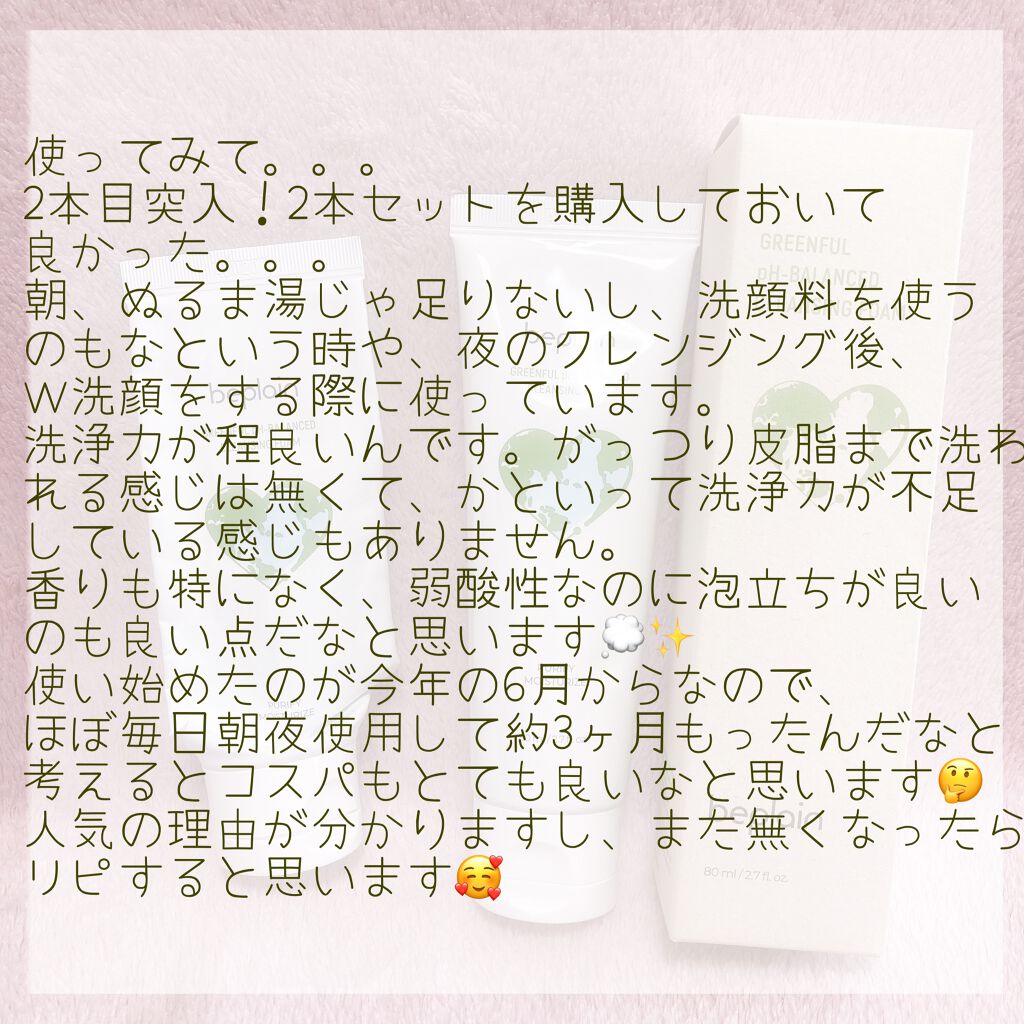 使ってみて。。。
2本目突入！2本セットを購入しておいて
良かった。。。
朝、ぬるま湯じゃ足りないし、洗顔料を使う
のもなという時や、夜のクレンジング後、
W洗顔をする際に使っています。
洗浄力が程良いんです。がっつり皮脂まで洗わ
れる感じは無くて、かといって洗浄力が不足
している感じもありません。
香りも特になく、弱酸性なのに泡立ちが良い
のも良い点だなと思います💭✨
使い始めたのが今年の6月からなので、
ほぼ毎日朝夜使用して約3ヶ月もったんだなと
考えるとコスパもとても良いなと思います🤔
人気の理由が分かりますし、また無くなったら
リピすると思います🥰
beplain
MOISTURIZE
beplain
GREENFUL
CLEANSING
MOISTURIZE
GREENFUL
pH-BALANCED
beplain
80 ml / 2.7 fl. oz.